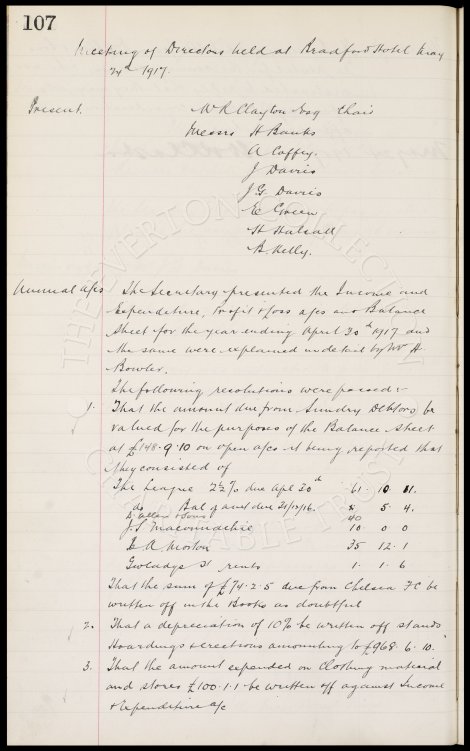 107
Meeting of Directors held at Bradford Hotel May
24th 1917.
Present. W R Clayton Esq Chair
Messrs H Banks
A Coffey.
J Davies
J G Davies
E Green
H Halsall
B. Kelly.
Annual a/cs The Secretary presented the Income and
Expenditure, Profit & Loss a/cs and Balance
Sheet for the year ending April 30th 1917 and
the same were explained in detail by Mr H
Bowler.
The following resolutions were passed:-
1. That the amount due from Sundry Debtors be
valued for the purposes of the Balance Sheet
at £148.9.10 on open a/cs it being reported that
they consisted of
The League 2½% due Apl 30th 61. 10 11.
do Bal of due 31/12/16. 5 4.
D. Allen & Sons 40
J. S. Maconnachie 10 0 0
E A Morton 35 12. 1
Gwladys St rents 1. 1. 6
That the sum of £74.2.5 due from Chelsea FC be
written off in the Books as doubtful
2. That a depreciation of 10% be written off stands
Hoardings & erections amounting to £968.6.10.
3. That the amount expended on Clothing material
and stores £100.1.1 be written off against Income
& Expenditure a/c
THE EVERTON COLLECTION
CHARITABLE TRUST